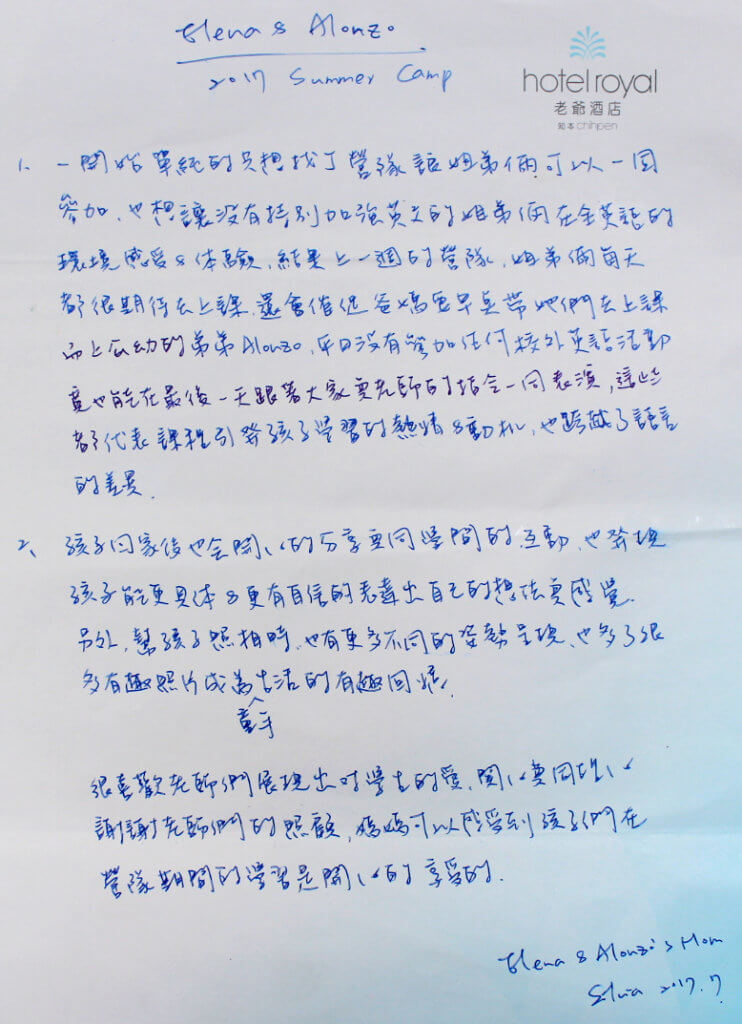 Elena & Alonzo
2017 Summer Camp
hotel royal
老爺酒店
知本 chihpen
1. 一開始單純的只想找了營隊讓姐弟倆可以一同
參加,也想讓沒有特別加強英文的姐弟倆在全英語的
環境感受&体驗,結果上一週的營隊,姐弟倆每天
都很期待去上課,還會催促爸媽要早点帶她們去上課
而上公幼的弟弟Alonzo,平日沒有參加任何校外英語活動
竟也能在最後一天跟著大家與老師的指令一同表演,這些
都代表課程引發孩子學習的熱情&動机,也跨越了語言
的差異.
2、孩子回家後也会開心的分享與同學間的互動,也發現
孩子能更具体&更有自信的表達出自己的想法與感覺.
另外,幫孩子照相時,也有更多不同的姿勢呈現,也多了很
多有趣照片成為生活的有趣回憶.
很喜歡老師們展現出对學生的愛,関心與同理心
謝謝老師們的照顧,媽媽可以感受到孩子們在
營隊期間的學習是開心的享受的.
Elena & Alonzo's Mom
2017.7